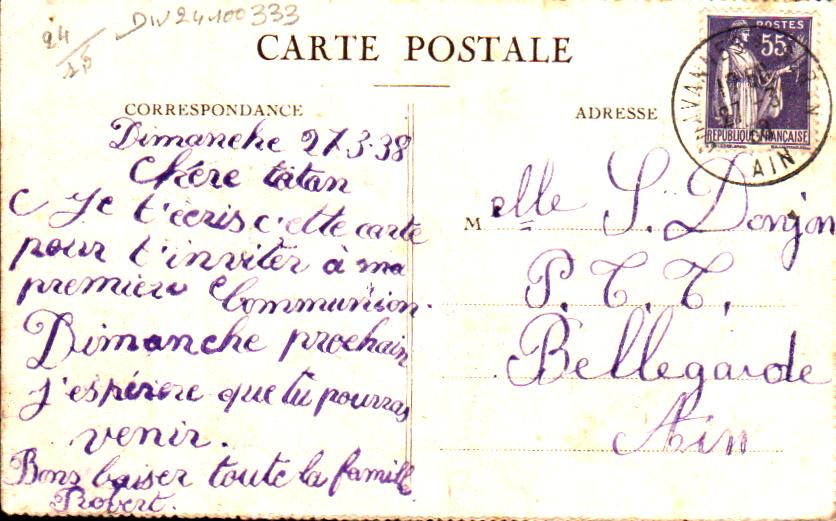 DIV24100333
24
15
CARTE POSTALE
CORRESPONDANCE
Dimanche 27.3.38
Chère tatan
Je t'écris c'ette carte
pour t'inviter à ma
première Communion.
Dimanche prochain
j'espérere que tu pourras
venir.
Bons baiser toute la famille
Robert.
ADRESSE
Melle S. Donjon
P.T.T.
Bellegarde
Ain
POSTES
55c
REPUBLIQUE FRANÇAISE
27 3
AIN